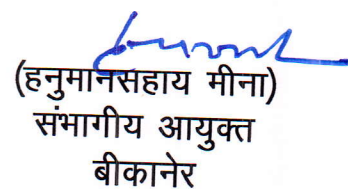 (हनुमानसहाय मीना)
संभागीय आयुक्त
बीकानेर